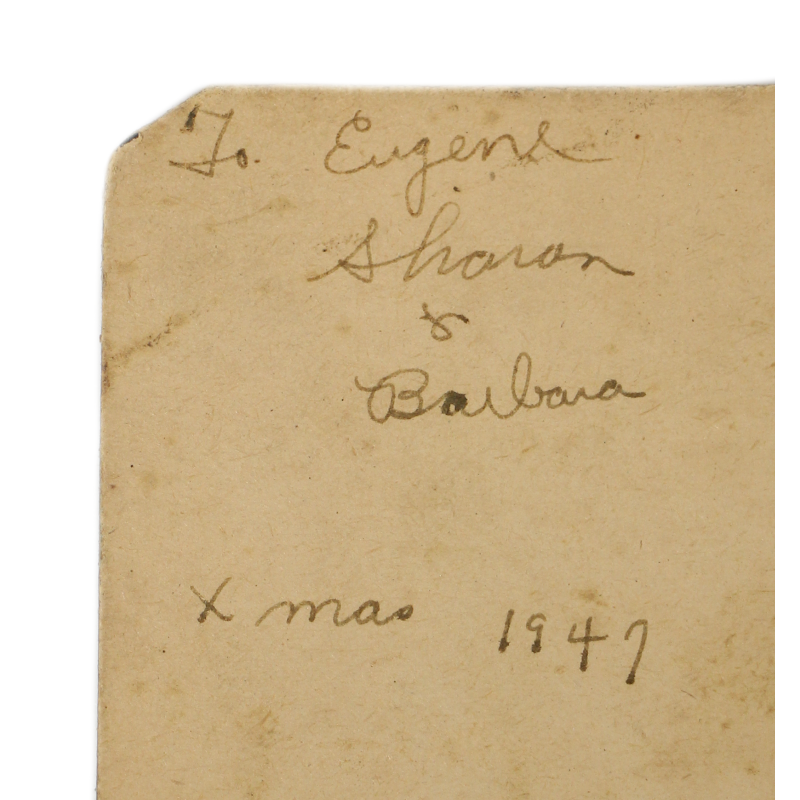 To. Eugene
Sharon
&
Barbara
Xmas 1947